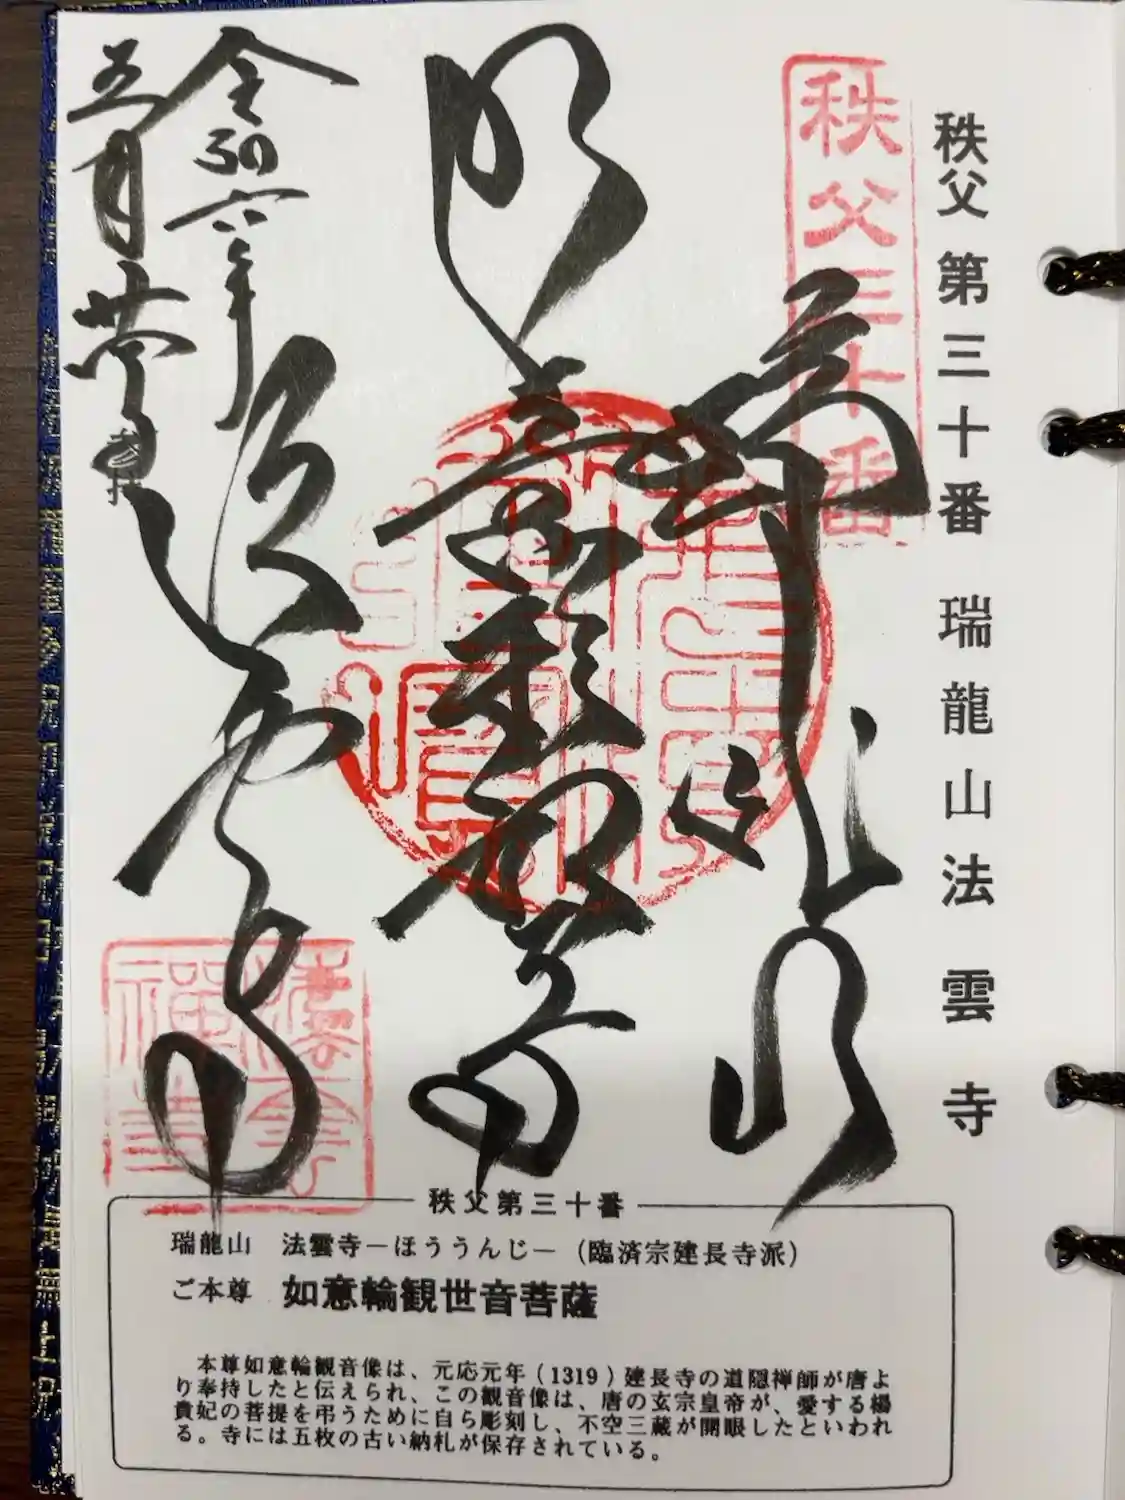 秩父第三十番 瑞龍山法雲寺
秩父三十番
瑞龍山
如意輪観世音
法雲寺
令和六年
五月廿一日
秩父第三十番
瑞龍山 法雲寺－ほううんじ－（臨済宗建長寺派）
ご本尊 如意輪観世音菩薩
本尊如意輪観音像は、元応元年（1319）建長寺の道隠禅師が唐よ
り奉持したと伝えられ、この観音像は、唐の玄宗皇帝が、愛する楊
貴妃の菩提を弔うために自ら彫刻し、不空三蔵が開眼したといわれ
る。寺には五枚の古い納札が保存されている。